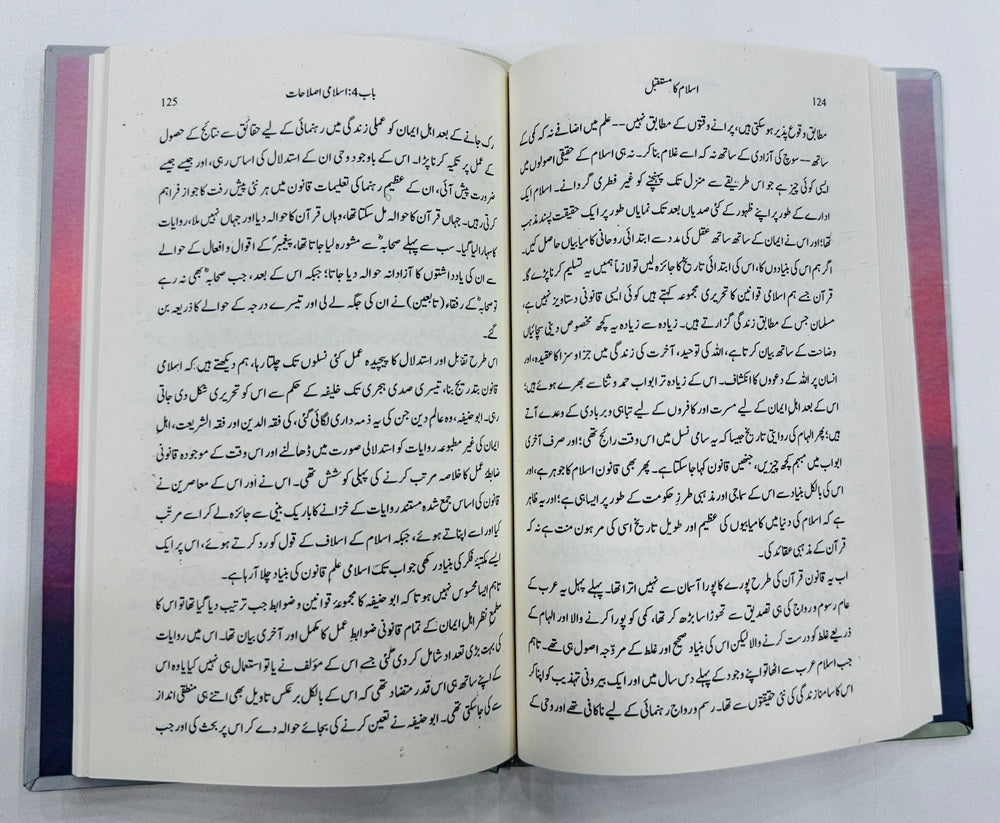 اسلام کا مستقبل
124
مطابق وقوع پذیر ہو سکتی ہیں، پرانے وقتوں کے مطابق نہیں -- علم میں اضافے نہ کہ کمی کے
ساتھ -- سوچ کی آزادی کے ساتھ نہ کہ اسے غلام بنا کر۔ نہ ہی اسلام کے حقیقی اصولوں میں
ایسی کوئی چیز ہے جو اس طریقے سے منزل تک پہنچنے کو غیر فطری گردانے۔ اسلام ایک
ادارے کے طور پر اپنے ظہور کے کئی صدیاں بعد تک نمایاں طور پر ایک حقیقت پسند مذہب
تھا؛ اور اس نے ایمان کے ساتھ ساتھ عقل کی مدد سے ابتدائی روحانی کامیابیاں حاصل کیں۔
اگر ہم اس کی بنیادوں کا، اس کی ابتدائی تاریخ کا جائزہ لیں تو لازماً ہمیں یہ تسلیم کرنا پڑے گا۔
قرآن جسے ہم اسلامی قوانین کا تحریری مجموعہ کہتے ہیں کوئی ایسی قانونی دستاویز نہیں ہے،
مسلمان جس کے مطابق زندگی گزارتے ہیں۔ زیادہ سے زیادہ یہ کچھ مخصوص دینی سچائیاں
وضاحت کے ساتھ بیان کرتا ہے، اللہ کی توحید، آخرت کی زندگی میں جزا و سزا کا عقیدہ، اور
انسان پر اللہ کے دعووں کا انکشاف۔ اس کے زیادہ تر ابواب حمد و ثنا سے بھرے ہوئے ہیں؛
اس کے بعد اہل ایمان کے لیے مسرت اور کافروں کے لیے تباہی و بربادی کے وعدے آتے
ہیں؛ پھر الہام کی روایتی تاریخ جیسا کہ یہ سامی نسل میں اس وقت رائج تھی؛ اور صرف آخری
ابواب میں مبہم کچھ چیزیں، جنھیں قانون کہا جا سکتا ہے۔ پھر بھی قانون اسلام کا جوہر ہے، اور
اس کی بالکل بنیاد سے اس کے سماجی اور مذہبی طرزِ حکومت کے طور پر ایسا ہی ہے؛ اور یہ ظاہر
ہے کہ اسلام کی دنیا میں کامیابیوں کی عظیم اور طویل تاریخ اسی کی مرہون منت ہے نہ کہ
قرآن کے مذہبی عقائد کی۔
اب یہ قانون قرآن کی طرح پورے کا پورا آسمان سے نہیں اترا تھا۔ پہلے پہل یہ عرب کے
عام رسوم و رواج کی ہی تصدیق سے تھوڑا سا بڑھ کر تھا، کمی کو پورا کرنے والا اور الہام کے
ذریعے غلط کو درست کرنے والا لیکن اس کی بنیاد صحیح اور غلط کے مروّجہ اصول ہی تھے۔ تاہم
جب اسلام عرب سے اٹھا تو اپنے وجود کے پہلے دس سال میں اور ایک بیرونی تہذیب کو اپنا کر
اس کا سامنا زندگی کی نئی حقیقتوں سے تھا۔ رسم و رواج رہنمائی کے لیے ناکافی تھے اور وحی کے
باب 4: اسلامی اصلاحات
125
رک جانے کے بعد اہل ایمان کو عملی زندگی میں رہنمائی کے لیے حقائق سے نتائج کے حصول
کے عمل پر تکیہ کرنا پڑا۔ اس کے باوجود وحی ان کے استدلال کی اساس رہی، اور جیسے جیسے
ضرورت پیش آئی، ان کے عظیم رہنما کی تعلیمات قانون میں ہر نئی پیش رفت کا جواز فراہم
کرتی رہیں۔ جہاں قرآن کا حوالہ مل سکتا تھا، وہاں قرآن کا حوالہ دیا اور جہاں نہیں ملا، روایات
کا سہارا لیا گیا۔ سب سے پہلے صحابہؓ سے مشورہ لیا جاتا تھا، پیغمبرؐ کے اقوال و افعال کے حوالے
سے ان کی یادداشتوں کا آزادانہ حوالہ دیا جاتا؛ جبکہ اس کے بعد، جب صحابہؓ بھی نہ رہے
تو صحابہؓ کے رفقاء (تابعین) نے ان کی جگہ لے لی اور تیسرے درجہ کے حوالے کا ذریعہ بن
گئے۔
اس طرح تقابل اور استدلال کا پیچیدہ عمل کئی نسلوں تک چلتا رہا، ہم دیکھتے ہیں کہ اسلامی
قانون بتدریج بنا، تیسری صدی ہجری تک خلیفہ کے حکم سے اس کو تحریری شکل دی جاتی
رہی۔ ابو حنیفہ، وہ عالم دین جن کی یہ ذمہ داری لگائی گئی، کی فقہ الدین اور فقہ الشریعت، اہل
ایمان کی غیر مطبوعہ روایات کو استدلالی صورت میں ڈھالنے اور اس وقت کے موجودہ قانونی
ضابطۂ عمل کا خلاصہ مرتب کرنے کی پہلی کوشش تھی۔ اس نے اور اس کے معاصرین نے
قانون کی اساس جمع شدہ مستند روایات کے خزانے کا باریک بینی سے جائزہ لے کر اسے مرتّب
کیا اور اسے اپناتے ہوئے، جبکہ اسلام کے اسلاف کے قول کو رد کرتے ہوئے، اس پر ایک
ایسے مکتبۂ فکر کی بنیاد رکھی جو اب تک اسلامی علم قانون کی بنیاد چلا آ رہا ہے۔
تاہم ایسا محسوس نہیں ہوتا کہ ابو حنیفہ کا مجموعۂ قوانین و ضوابط جب ترتیب دیا گیا تھا تو اس کا
مطمع نظر اہل ایمان کے تمام قانونی ضوابطِ عمل کا مکمل اور آخری بیان تھا۔ اس میں روایات
کی بہت بڑی تعداد شامل کر دی گئی جسے اس کے مؤلف نے یا تو استعمال ہی نہیں کیا یا وہ اس
کے اپنے ساتھ ہی اس قدر متضاد تھی کہ اس کے بالکل برعکس تاویل بھی اتنے ہی منطقی انداز
سے کی جا سکتی تھی۔ ابو حنیفہ نے تعین کرنے کی بجائے حوالہ دے کر اس پر بحث کی اور جب